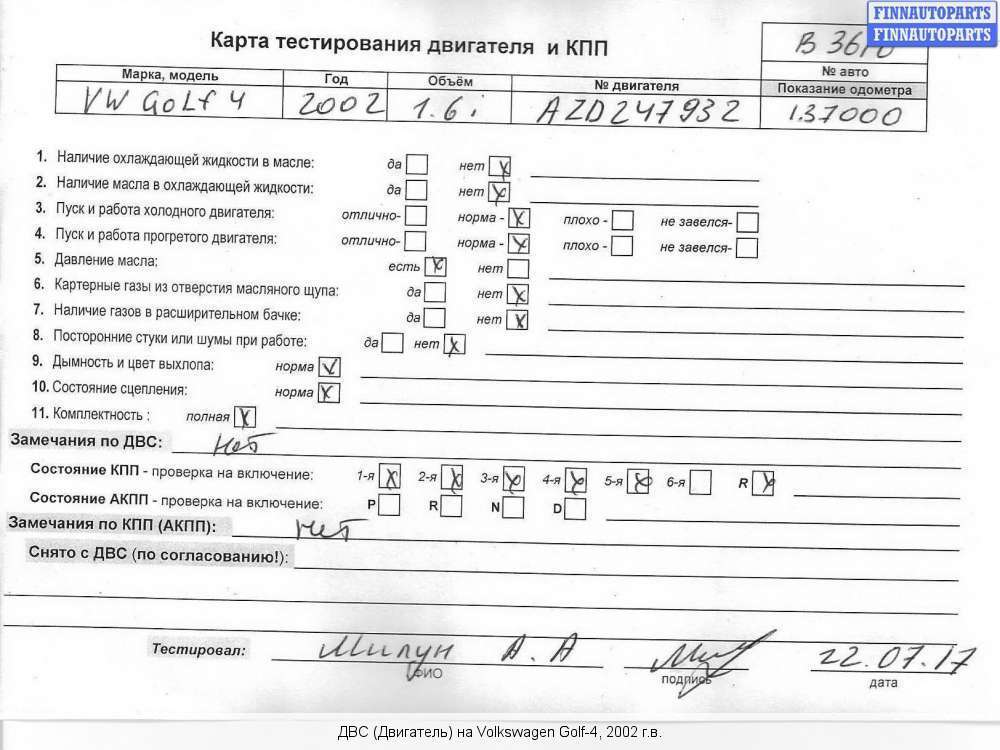 FINNAUTOPARTS
FINNAUTOPARTS
Карта тестирования двигателя и КПП
№ авто
Марка, модель Год Объём № двигателя Показание одометра
VW GoLf 4 2002 1.6 i AZD247932 137000
1. Наличие охлаждающей жидкости в масле: да нет x
2. Наличие масла в охлаждающей жидкости: да нет x
3. Пуск и работа холодного двигателя: отлично- норма - x плохо - не завелся-
4. Пуск и работа прогретого двигателя: отлично- норма - x плохо - не завелся-
5. Давление масла: есть x нет
6. Картерные газы из отверстия масляного щупа: да нет x
7. Наличие газов в расширительном бачке: да нет x
8. Посторонние стуки или шумы при работе: да нет x
9. Дымность и цвет выхлопа: норма v
10. Состояние сцепления: норма x
11. Комплектность : полная x
Замечания по ДВС: нет
Состояние КПП - проверка на включение: 1-я x 2-я x 3-я x 4-я x 5-я x 6-я R x
Состояние АКПП - проверка на включение: P R N D
Замечания по КПП (АКПП): нет
Снято с ДВС (по согласованию!):
Тестировал: Милун А. А 22.07.17
ФИО подпись дата
ДВС (Двигатель) на Volkswagen Golf-4, 2002 г.в.